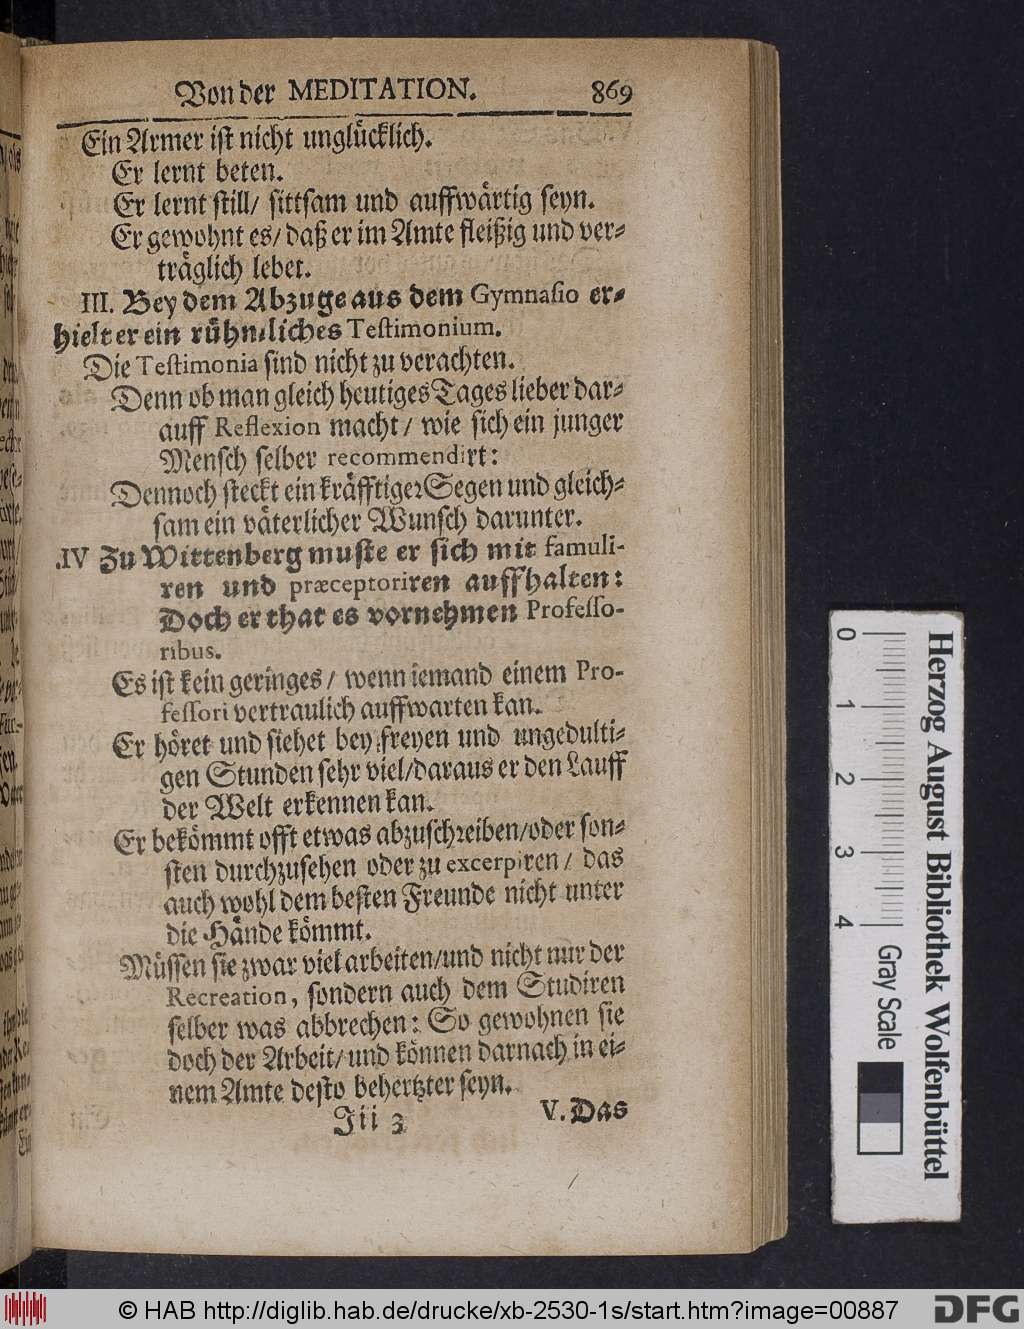 Von der MEDITATION. 869
Ein Armer ist nicht unglücklich.
Er lernt beten.
Er lernt still/ sittsam und auffwärtig seyn.
Er gewohnt es/ daß er im Amte fleißig und ver-
träglich lebet.
III. Bey dem Abzuge aus dem Gymnasio er-
hielt er ein rühmliches Testimonium.
Die Testimonia sind nicht zu verachten.
Denn ob man gleich heutiges Tages lieber dar-
auff Reflexion macht/ wie sich ein junger
Mensch selber recommendirt:
Dennoch steckt ein kräfftiger Segen und gleich-
sam ein väterlicher Wunsch darunter.
.IV Zu Wittenberg muste er sich mit famuli-
ren und præceptoriren auffhalten:
Doch er that es vornehmen Professo-
ribus.
Es ist kein geringes/ wenn iemand einem Pro-
fessori vertraulich auffwarten kan.
Er höret und siehet bey freyen und ungedulti-
gen Stunden sehr viel/daraus er den Lauff
der Welt erkennen kan.
Er bekömmt offt etwas abzuschreiben/oder son-
sten durchzusehen oder zu excerpiren/ das
auch wohl dem besten Freunde nicht unter
die Hände kömmt.
Müssen sie zwar viel arbeiten/und nicht nur der
Recreation, sondern auch dem Studiren
selber was abbrechen: So gewohnen sie
doch der Arbeit/und können darnach in ei-
nem Amte desto behertzter seyn.
Jii 3 V. Das
Herzog August Bibliothek Wolfenbüttel
0 1 2 3 4
Gray Scale
© HAB http://diglib.hab.de/drucke/xb-2530-1s/start.htm?image=00887
DFG